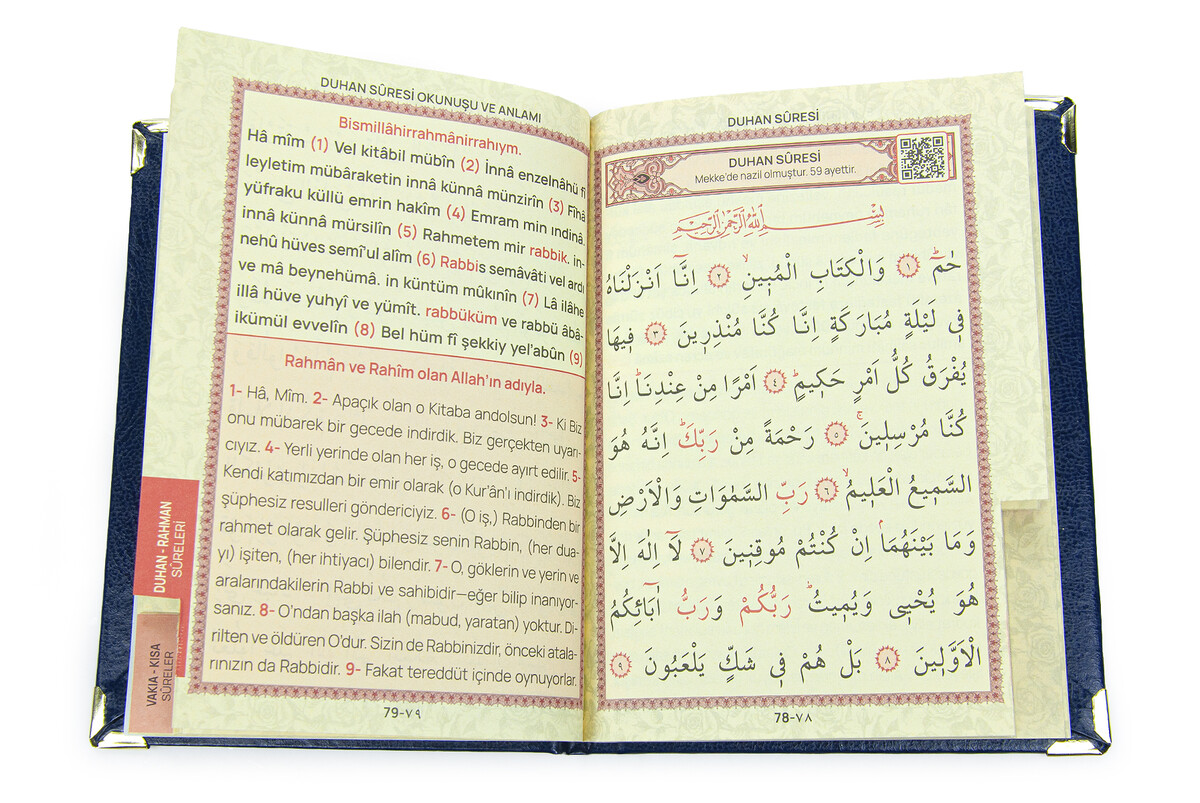 DUHAN SÛRESİ OKUNUŞU VE ANLAMI
Bismillâhirrahmânirrahıym.
Hâ mîm (1) Vel kitâbil mübîn (2) İnnâ enzelnâhü fî
leyletim mübâraketin innâ künnâ münzirîn (3) Fîhâ
yüfraku küllü emrin hakîm (4) Emram min ındinâ,
innâ künnâ mürsilîn (5) Rahmetem mir rabbik. in-
nehû hüves semî'ul alîm (6) Rabbis semâvâti vel ardı
ve mâ beynehümâ. in küntüm mûkınîn (7) Lâ ilâhe
illâ hüve yuhyî ve yümît. rabbüküm ve rabbü âbâ-
ikümül evvelîn (8) Bel hüm fî şekkiy yel'abûn (9)
Rahmân ve Rahîm olan Allah'ın adıyla.
1- Hâ, Mîm. 2- Apaçık olan o Kitaba andolsun! 3- Ki Biz
onu mübarek bir gecede indirdik. Biz gerçekten uyarı-
cıyız. 4- Yerli yerinde olan her iş, o gecede ayırt edilir. 5-
Kendi katımızdan bir emir olarak (o Kur'ân'ı indirdik). Biz
şüphesiz resulleri göndericiyiz. 6- (O iş,) Rabbinden bir
rahmet olarak gelir. Şüphesiz senin Rabbin, (her dua-
yı) işiten, (her ihtiyacı) bilendir. 7- O, göklerin ve yerin ve
aralarındakilerin Rabbi ve sahibidir—eğer bilip inanıyor-
sanız. 8- O'ndan başka ilah (mabud, yaratan) yoktur. Di-
rilten ve öldüren O'dur. Sizin de Rabbinizdir, önceki atala-
rınızın da Rabbidir. 9- Fakat tereddüt içinde oynuyorlar.
79-٧٩
DUHAN - RAHMAN
SÛRELERİ
VAKIA - KISA
SÛRELER
DUHAN SÛRESİ
DUHAN SÛRESİ
Mekke'de nazil olmuştur. 59 ayettir.
بِسْمِ اللّٰهِ الرَّحْمٰنِ الرَّحِيمِ
حٰمٓ ﴿١﴾ وَالْكِتَابِ الْمُبٖينِۙ ﴿٢﴾ اِنَّٓا اَنْزَلْنَاهُ
فٖي لَيْلَةٍ مُبَارَكَةٍ اِنَّا كُنَّا مُنْذِرٖينَ ﴿٣﴾ فٖيهَا
يُفْرَقُ كُلُّ اَمْرٍ حَكٖيمٍۙ ﴿٤﴾ اَمْرًا مِنْ عِنْدِنَاۜ اِنَّا
كُنَّا مُرْسِلٖينَۚ ﴿٥﴾ رَحْمَةً مِنْ رَبِّكَۜ اِنَّهُ هُوَ
السَّمٖيعُ الْعَلٖيمُۙ ﴿٦﴾ رَبِّ السَّمٰوَاتِ وَالْاَرْضِ
وَمَا بَيْنَهُمَاۢ اِنْ كُنْتُمْ مُوقِنٖينَ ﴿٧﴾ لَٓا اِلٰهَ اِلَّا
هُوَ يُحْيٖي وَيُمٖيتُۜ رَبُّكُمْ وَرَبُّ اٰبَٓائِكُمُ
الْاَوَّلٖينَ ﴿٨﴾ بَلْ هُمْ فٖي شَكٍّ يَلْعَبُونَ ﴿٩﴾
78-٧٨